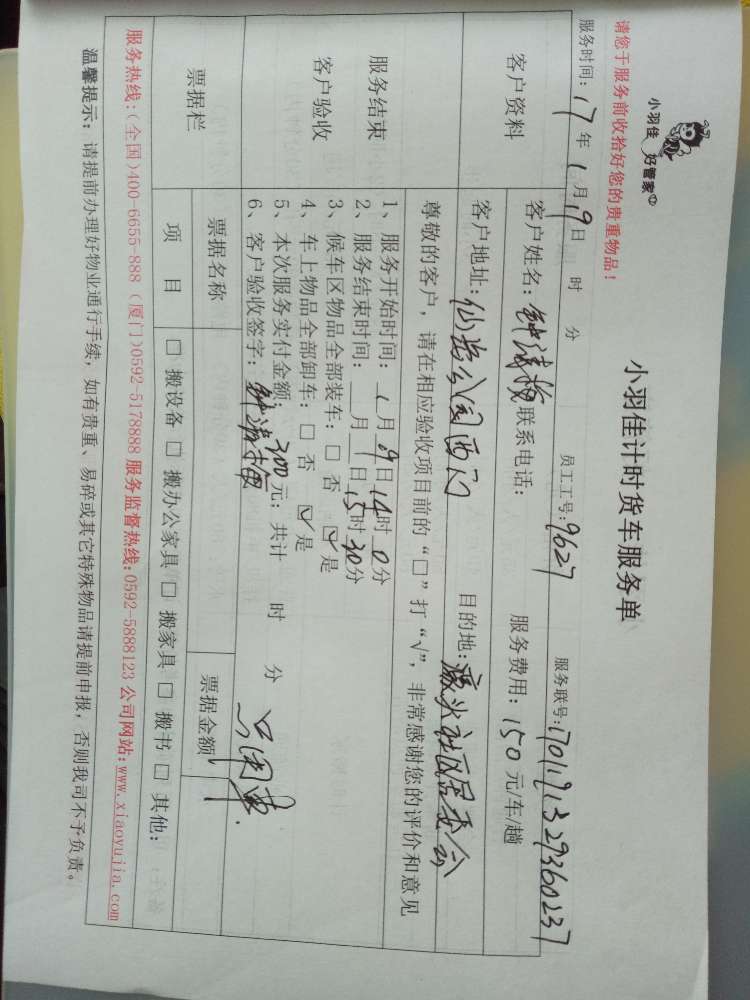 小羽佳 好管家
小羽佳计时货车服务单
请您于服务前收拾好您的贵重物品！
服务时间：17年1月19日 时 分 员工工号：9627 服务联号：1701191329360237
客户资料
客户姓名：钟清梅 联系电话： 服务费用：150元/车/趟
客户地址：仙岳公园西门 目的地：社区居委会
服务结束
客户验收
尊敬的客户，请在相应验收项目前的“□”打“√”，非常感谢您的评价和意见
1、服务开始时间：1月19日14时0分
2、服务结束时间： 月 日15时30分
3、候车区物品全部装车：□ 否 ☑ 是
4、车上物品全部卸车：□ 否 ☑ 是
5、本次服务实付金额：300元；共计 时 分
6、客户验收签字：钟清梅
票据栏 票据名称 票据金额
项 目 □ 搬设备 □ 搬办公家具 □ 搬家具 □ 搬书 □ 其他：
服务热线：(全国)400-6655-888 (厦门)0592-5178888 服务监督热线：0592-5888123 公司网站：www.xiaoyujia.com
温馨提示：请提前办理好物业通行手续，如有贵重、易碎或其它特殊物品请提前申报，否则我司不予负责。